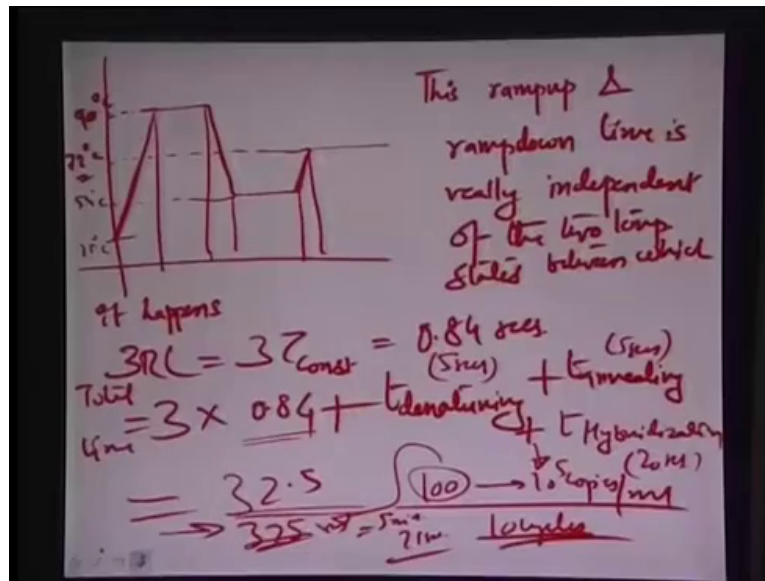 This rampup &
rampdown time is
really independent
of the two temp
states between which
it happens
90°c
72°c
3RC = 3τconst = 0.84 secs
Total time = 3 × 0.84 + tdenaturing (5secs) + tannealing (5secs)
+ tHybridization (20secs)
= 32.5
100 → copies/ml
325 = 5min
10cycles